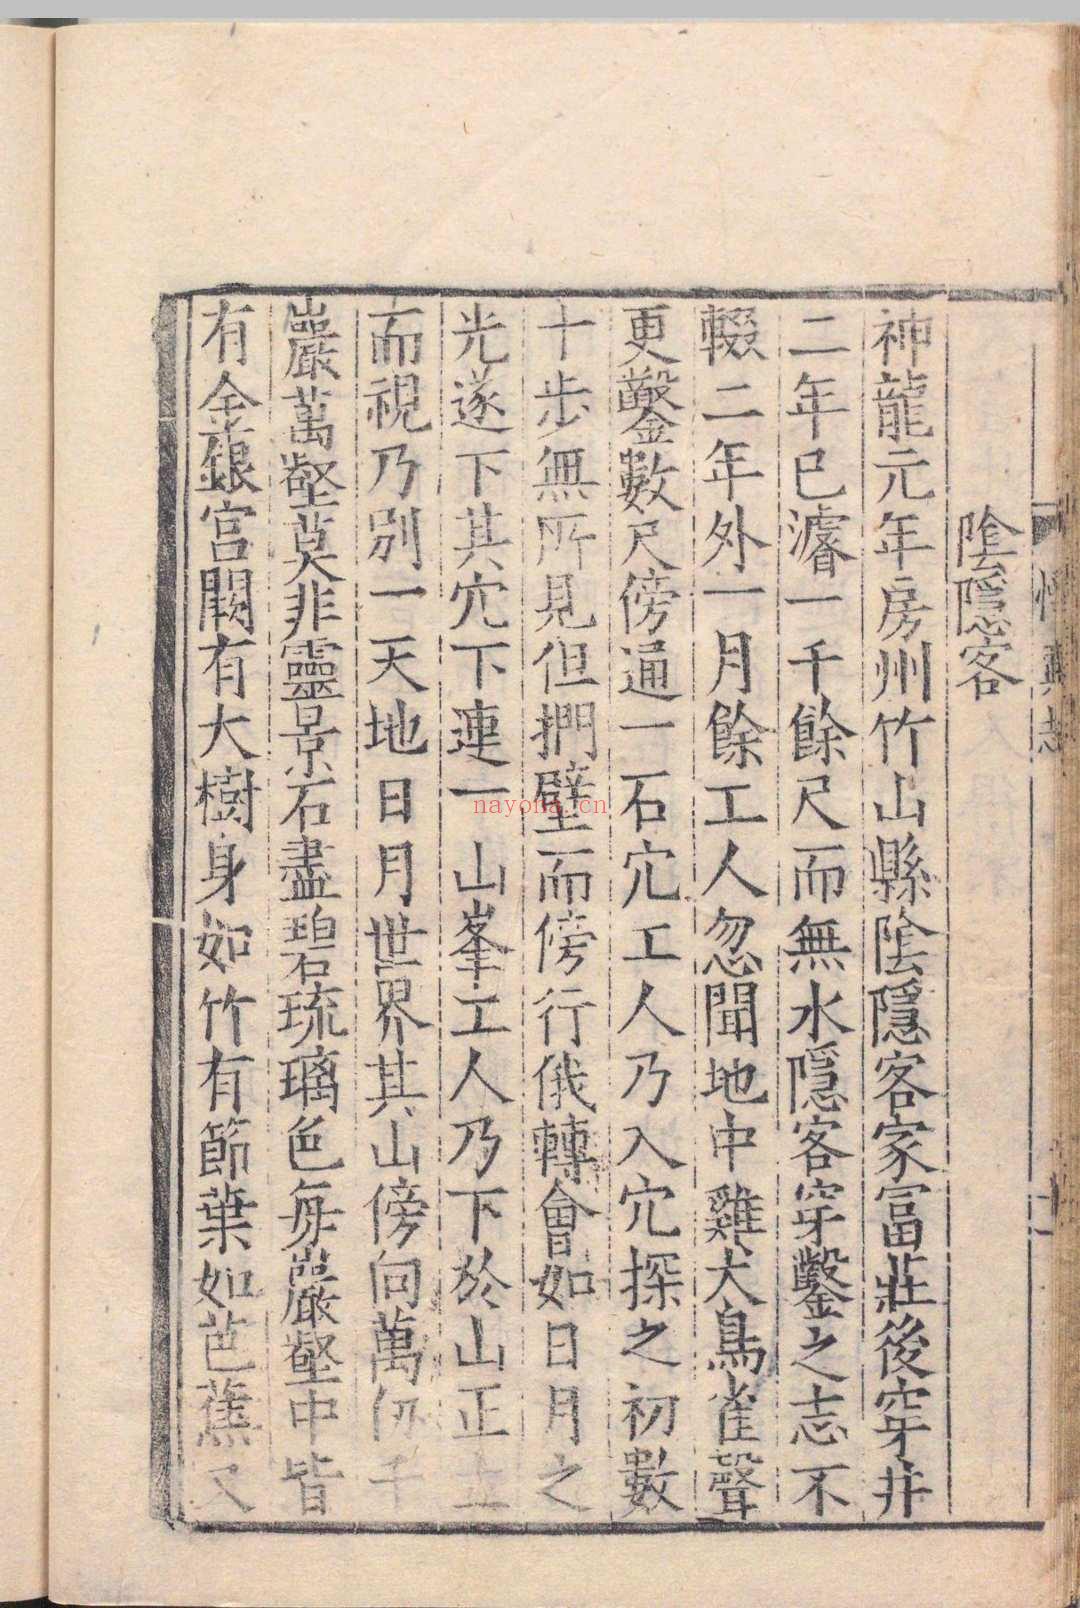 博異志
十一
陰隱客
神龍元年房州竹山縣陰隱客家富莊後穿井
二年已濬一千餘尺而無水隱客穿鑿之志不
輟二年外一月餘工人忽聞地中雞犬鳥雀聲
更鑿數尺傍通一石穴工人乃入穴探之初數
十步無所見但捫壁而傍行俄轉會如日月之
光遂下其穴下連一山峯工人乃下於山正立
而視乃別一天地日月世界其山傍向萬仞千
巖萬壑莫非靈景石盡碧琉璃色每巖壑中皆
有金銀宮闕有大樹身如竹有節葉如芭蕉又
nayona.cn